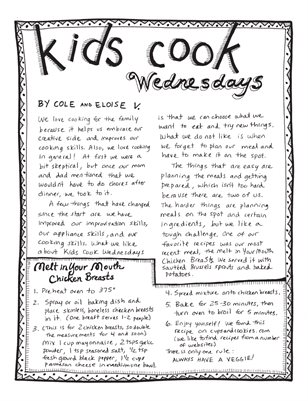 kids cook
Wednesdays
BY COLE AND ELOISE V.
We love cooking for the family
because it helps us embrace our
creative side and improves our
cooking skills. Also, we love cooking
in general! At first we were a
bit skeptical, but once our mom
and dad mentioned that we
wouldn't have to do chores after
dinner, we took to it.
A few things that have changed
since the start are we have
improved our improvisation skills,
our appliance skills, and our
cooking skills. What we like
about Kids Cook Wednesdays
is that we can choose what we
want to eat and try new things.
What we do not like is when
we forget to plan our meal and
have to make it on the spot.
The things that are easy are
planning the meals and getting
prepared, which isn't too hard
because there are two of us.
The harder things are planning
meals on the spot and certain
ingredients, but we like a
tough challenge. One of our
favorite recipes was our most
recent meal, the Melt in Your Mouth
Chicken Breasts. We served it with
sautéed Brussels sprouts and baked
potatoes.
Melt in Your Mouth
Chicken Breasts
1. Preheat oven to 375°
2. Spray or oil baking dish and
place skinless, boneless chicken breasts
in it. (One breast serves 1-2 people)
3. (This is for 2 chicken breasts, so double
the measurements for 4 and soon)
Mix 1 cup mayonnaise, 2 tsps garlic
powder, 1 tsp seasoned salt, 1/2 tsp
fresh ground black pepper, 1/2 cup
parmesan cheese in medium size bowl.
4. Spread mixture onto chicken breasts.
5. Bake for 25-30 minutes, then
turn oven to broil for 5 minutes.
6. Enjoy yourself! We found this
recipe on
(we like to find recipes from a number
of websites).
There is only one rule:
ALWAYS HAVE A VEGGIE!